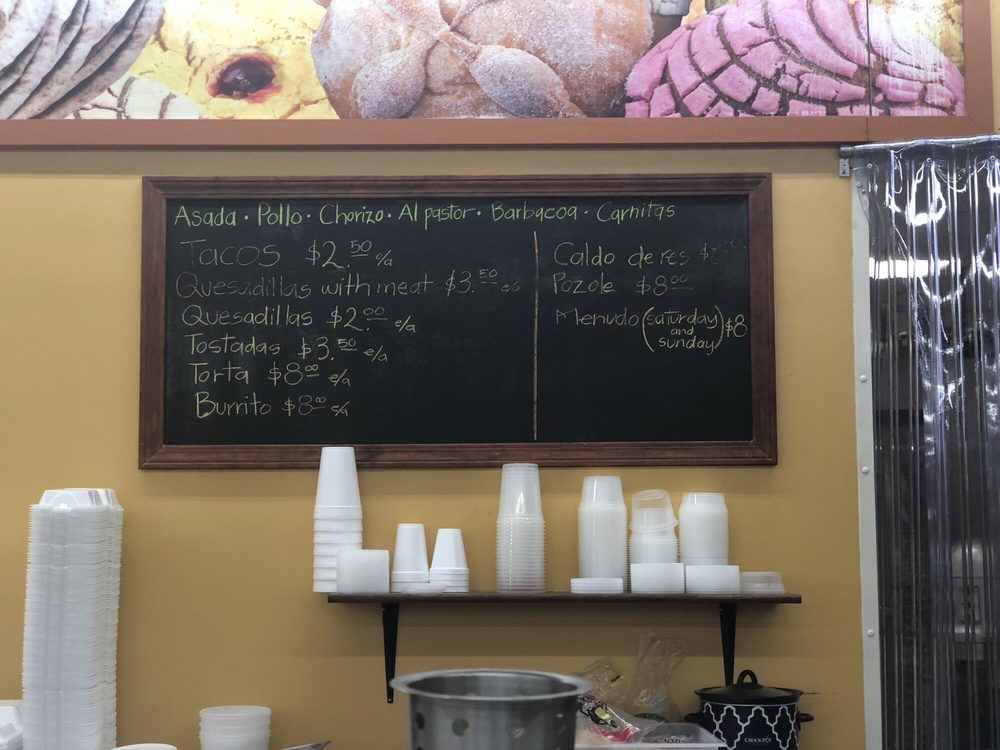 Asada · Pollo · Chorizo · Al pastor · Barbacoa · Carnitas
Tacos $2.50 e/a
Quesadillas with meat $3.50 ea
Quesadillas $2.00 e/a
Tostadas $3.50 e/a
Torta $8.00 e/a
Burrito $8.00 e/a
Caldo de res
Pozole $8.00
Menudo (saturday and sunday) $8
CROCK-POT